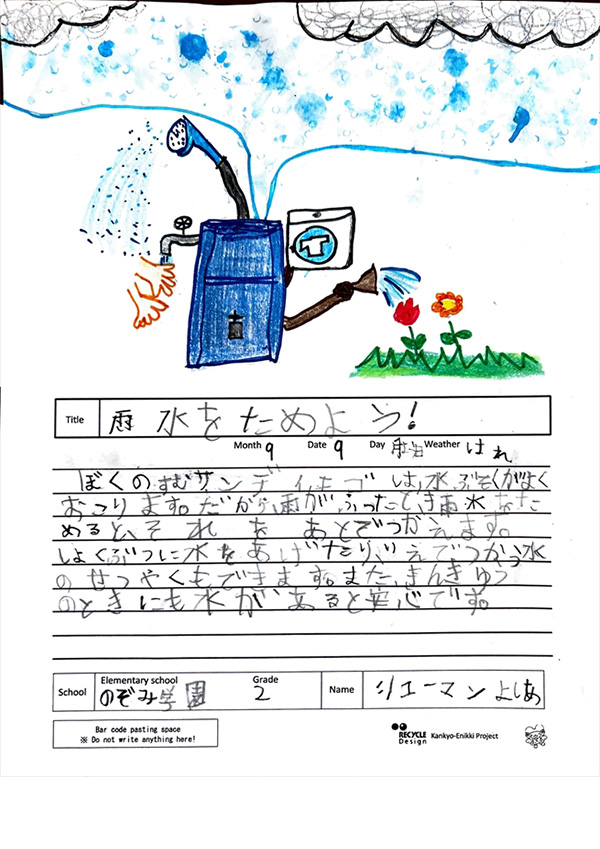 Title 雨水をためよう!
Month 9 Date 9 Day Weather はれ
ぼくのすむサンディエゴは、水ぶそくがよく
おこります。だから、雨がふったとき雨水をた
めると、それをあとでつかえます。
しょくぶつに水をあげたり、いえでつかう水
のせつやくもできます。また、きんきゅう
のときにも水があると安心です。
School Elementary school のぞみ学園 Grade 2 Name シエーマン よしあ
Bar code pasting space
※ Do not write anything here!
RECYCLE Design Kankyo-Enikki Project